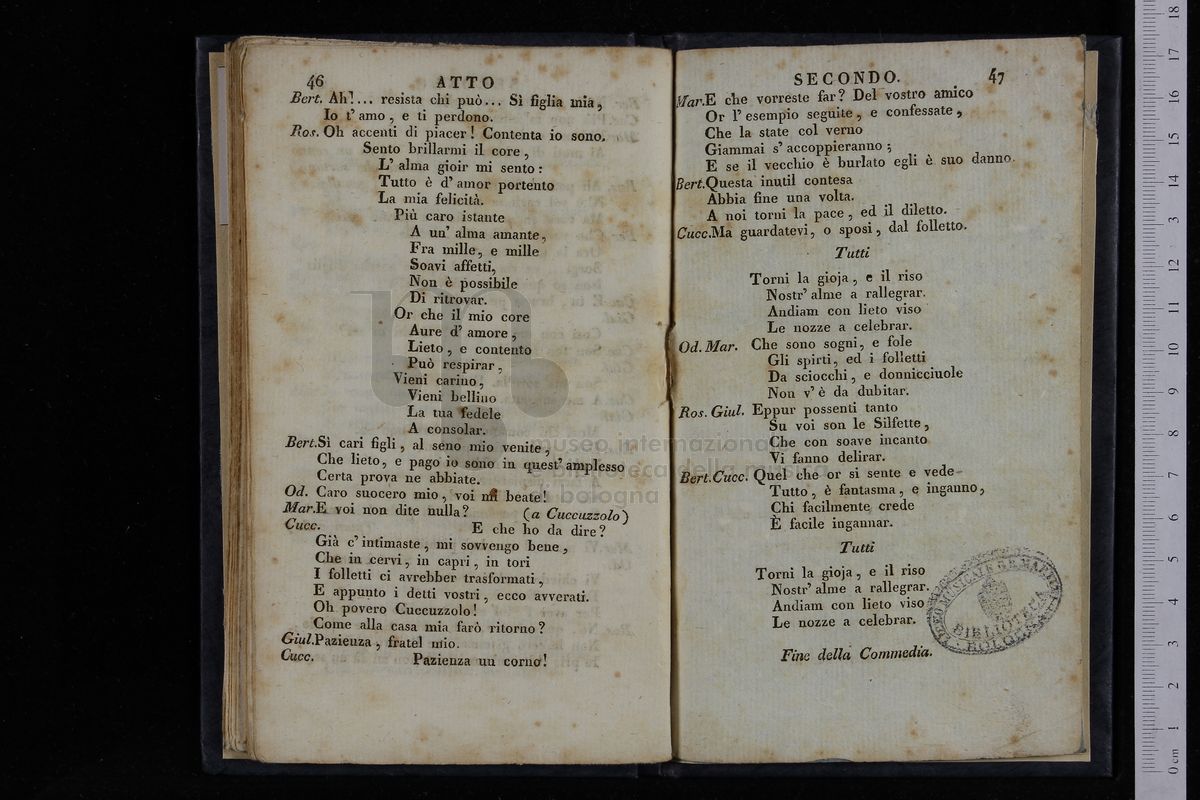 46 ATTO
Bert. Ah!... resista chi può... Sì figlia mia,
Io t'amo, e ti perdono.
Ros. Oh accenti di piacer! Contenta io sono.
Sento brillarmi il core,
L'alma gioir mi sento:
Tutto è d'amor portento
La mia felicità.
Più caro istante
A un' alma amante,
Fra mille, e mille
Soavi affetti,
Non è possibile
Di ritrovar.
Or che il mio core
Aure d'amore,
Lieto, e contento
Può respirar,
Vieni carino,
Vieni bellino
La tua fedele
A consolar.
Bert. Sì cari figli, al seno mio venite,
Che lieto, e pago io sono in quest' amplesso
Certa prova ne abbiate.
Od. Caro suocero mio, voi mi beate!
Mar. E voi non dite nulla? (a Cuccuzzolo)
Cucc. E che ho da dire?
Già c'intimaste, mi sovvengo bene,
Che in cervi, in capri, in tori
I folletti ci avrebber trasformati,
E appunto i detti vostri, ecco avverati.
Oh povero Cuccuzzolo!
Come alla casa mia farò ritorno?
Giul. Pazienza, fratel mio.
Cucc. Pazienza un corno!
SECONDO. 47
Mar. E che vorreste far? Del vostro amico
Or l'esempio seguite, e confessate,
Che la state col verno
Giammai s'accoppieranno;
E se il vecchio è burlato egli è suo danno.
Bert. Questa inutil contesa
Abbia fine una volta.
A noi torni la pace, ed il diletto.
Cucc. Ma guardatevi, o sposi, dal folletto.
Tutti
Torni la gioja, e il riso
Nostr' alme a rallegrar.
Andiam con lieto viso
Le nozze a celebrar.
Od. Mar. Che sono sogni, e fole
Gli spirti, ed i folletti
Da sciocchi, e donnicciuole
Non v'è da dubitar.
Ros. Giul. Eppur possenti tanto
Su voi son le Silfette,
Che con soave incanto
Vi fanno delirar.
Bert. Cucc. Quel che or si sente e vede
Tutto, è fantasma, e inganno,
Chi facilmente crede
È facile ingannar.
Tutti
Torni la gioja, e il riso
Nostr' alme a rallegrar.
Andiam con lieto viso
Le nozze a celebrar.
Fine della Commedia.
museo internazionale
e biblioteca della musica
di bologna
BIBLIOTECA
BOLOGNA
0 cm 1 2 3 4 5 6 7 8 9 10 11 12 13 14 15 16 17 18